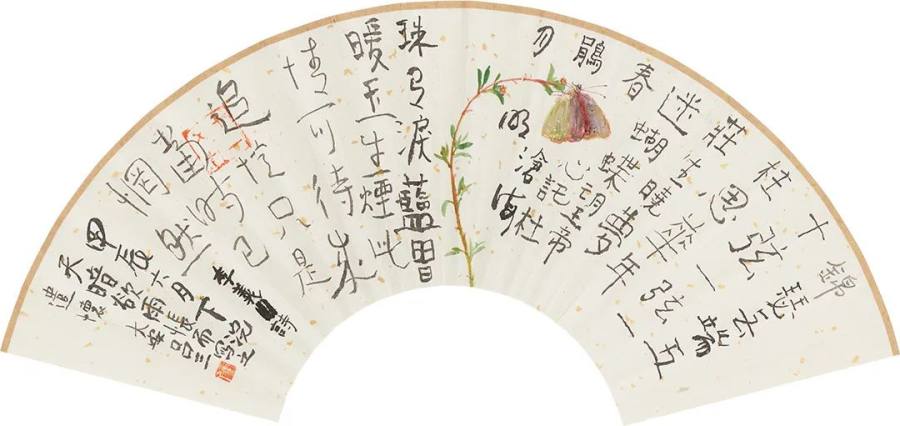 錦瑟无端五
十弦一弦一
柱思華年
莊生曉夢
迷蝴蝶望帝
春心託杜
鵑滄海
月明
珠有淚藍田
暖玉生煙此
情可待成
追憶只是
當時已
惘然
李義山詩
甲辰六月下浣
天暗欲雨悵而寫之